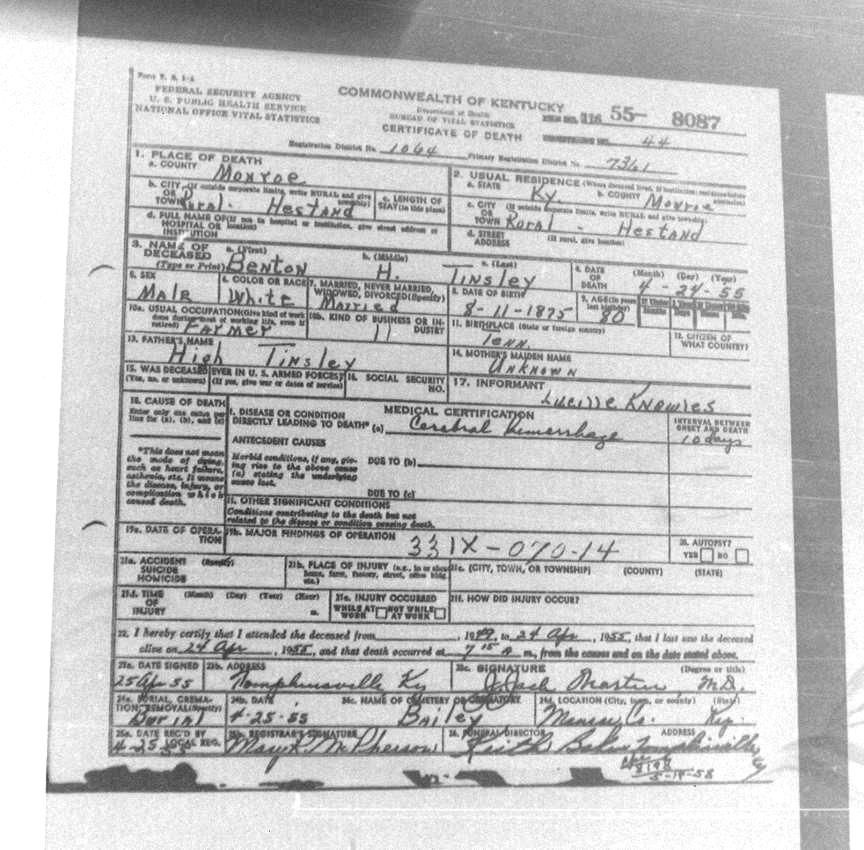 Form V. S. 1-A
FEDERAL SECURITY AGENCY
U. S. PUBLIC HEALTH SERVICE
NATIONAL OFFICE VITAL STATISTICS
COMMONWEALTH OF KENTUCKY
Department of Health
BUREAU OF VITAL STATISTICS
CERTIFICATE OF DEATH
FILE NO. 116 55- 8087
REGISTRAR'S NO. 44
Registration District No. 1064 Primary Registration District No. 7361
1. PLACE OF DEATH
a. COUNTY Monroe
b. CITY (If outside corporate limits, write RURAL and give township)
OR TOWN Rural - Hestand
c. LENGTH OF STAY (in this place)
d. FULL NAME OF (If not in hospital or institution, give street address or location)
HOSPITAL OR INSTITUTION
2. USUAL RESIDENCE (Where deceased lived. If institution: residence before admission)
a. STATE Ky. b. COUNTY Monroe
c. CITY (If outside corporate limits, write RURAL and give township)
OR TOWN Rural - Hestand
d. STREET ADDRESS (If rural, give location)
3. NAME OF DECEASED (Type or Print)
a. (First) Benton b. (Middle) H. c. (Last) Tinsley
4. DATE OF DEATH (Month) (Day) (Year) 4-24-55
5. SEX Male
6. COLOR OR RACE White
7. MARRIED, NEVER MARRIED, WIDOWED, DIVORCED (Specify) Married
8. DATE OF BIRTH 8-11-1875
9. AGE (In years last birthday) 80
10a. USUAL OCCUPATION (Give kind of work done during most of working life, even if retired) Farmer
10b. KIND OF BUSINESS OR INDUSTRY 11
11. BIRTHPLACE (State or foreign country) Tenn.
12. CITIZEN OF WHAT COUNTRY?
13. FATHER'S NAME High Tinsley
14. MOTHER'S MAIDEN NAME Unknown
15. WAS DECEASED EVER IN U. S. ARMED FORCES?
(Yes, no, or unknown) (If yes, give war or dates of service)
16. SOCIAL SECURITY NO.
17. INFORMANT Lucille Knowles
18. CAUSE OF DEATH
Enter only one cause per line for (a), (b), and (c)
*This does not mean the mode of dying, such as heart failure, asthenia, etc. It means the disease, injury, or complication which caused death.
MEDICAL CERTIFICATION
I. DISEASE OR CONDITION
DIRECTLY LEADING TO DEATH* (a) Cerebral hemorrhage
INTERVAL BETWEEN ONSET AND DEATH 10 days
ANTECEDENT CAUSES
Morbid conditions, if any, giving rise to the above cause (a) stating the underlying cause last.
DUE TO (b)
DUE TO (c)
II. OTHER SIGNIFICANT CONDITIONS
Conditions contributing to the death but not related to the disease or condition causing death.
19a. DATE OF OPERATION
19b. MAJOR FINDINGS OF OPERATION
331X-070-14
20. AUTOPSY?
YES NO
21a. ACCIDENT SUICIDE HOMICIDE (Specify)
21b. PLACE OF INJURY (e.g., in or about home, farm, factory, street, office bldg., etc.)
21c. (CITY, TOWN, OR TOWNSHIP) (COUNTY) (STATE)
21d. TIME OF INJURY (Month) (Day) (Year) (Hour) m.
21e. INJURY OCCURRED
WHILE AT WORK NOT WHILE AT WORK
21f. HOW DID INJURY OCCUR?
22. I hereby certify that I attended the deceased from , 1949, to 24 Apr, 1955, that I last saw the deceased
alive on 24 Apr, 1955, and that death occurred at 7 15 A m., from the causes and on the date stated above.
23a. DATE SIGNED 25 Apr 55
23b. ADDRESS Tompkinsville Ky
23c. SIGNATURE Jack Martin M.D. (Degree or title)
24a. BURIAL, CREMATION, REMOVAL (Specify) Burial
24b. DATE 4-25-55
24c. NAME OF CEMETERY OR CREMATORY Bailey
24d. LOCATION (City, town, or county) (State) Monroe Co. Ky.
25a. DATE REC'D BY LOCAL REG. 4-25-55
25b. REGISTRAR'S SIGNATURE Mary K McPherson
26. FUNERAL DIRECTOR ADDRESS Keith Baker Tompkinsville Ky
5-19-55